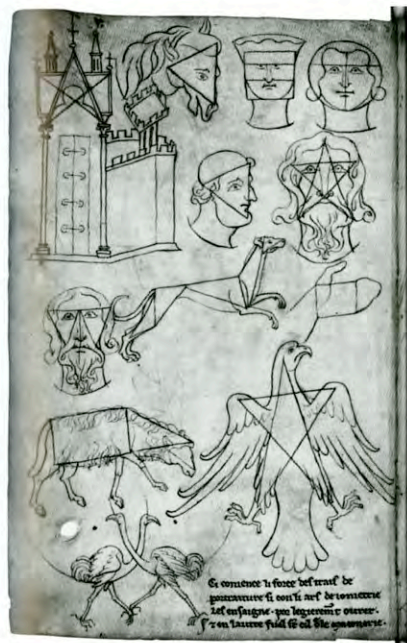 Ci comence li force des trais de
portraiture si con li ars de iometrie
les ensaigne · por legierem̄t ovrer.
⁊ en lautre fuel sōt cil dele maconerie·